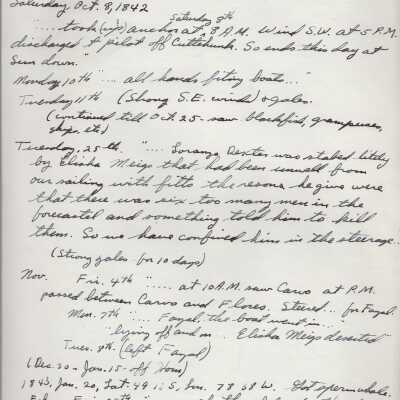 Saturday, Oct. 8, 1842
Saturday 8th
"..... took (up) anchor at 8 A.M. Wind S.W. at 5 P.M.
discharged a pilot off Cuttehunk. So ends this day at
Sun down."
Monday 10th "... all hands fiting boats..."
Tuesday 11th (Strong S.E. winds) & gales.
(continued till Oct. 25 - saw blackfish, grampuses,
ships. etc)
Tuesday, 25th. ".... Loranzo Dexter was stabed litely
by Elisha Meigs that had been unwell from
our sailing with fitts the resons he give were
that there was six too many men in the
forecastel and something told him to kill
them. So we have confined him in the steerage.
(Strong gales for 10 days)
Nov. Fri. 4th "..... at 10 A.M. saw Corvo at P.M.
passed between Corvo and Flores. Steerd... for Fayal.
Mon. 7th ".... Fayal, the boat went in...
lying off and on... Elisha Meigs deserted
Tues. 8th. (left Fayal)
(Dec. 30 - Jan. 15 - off Horn)
1843, Jan. 20, Lat. 49 1 S, Lon. 78 58 W. Got sperm whale.